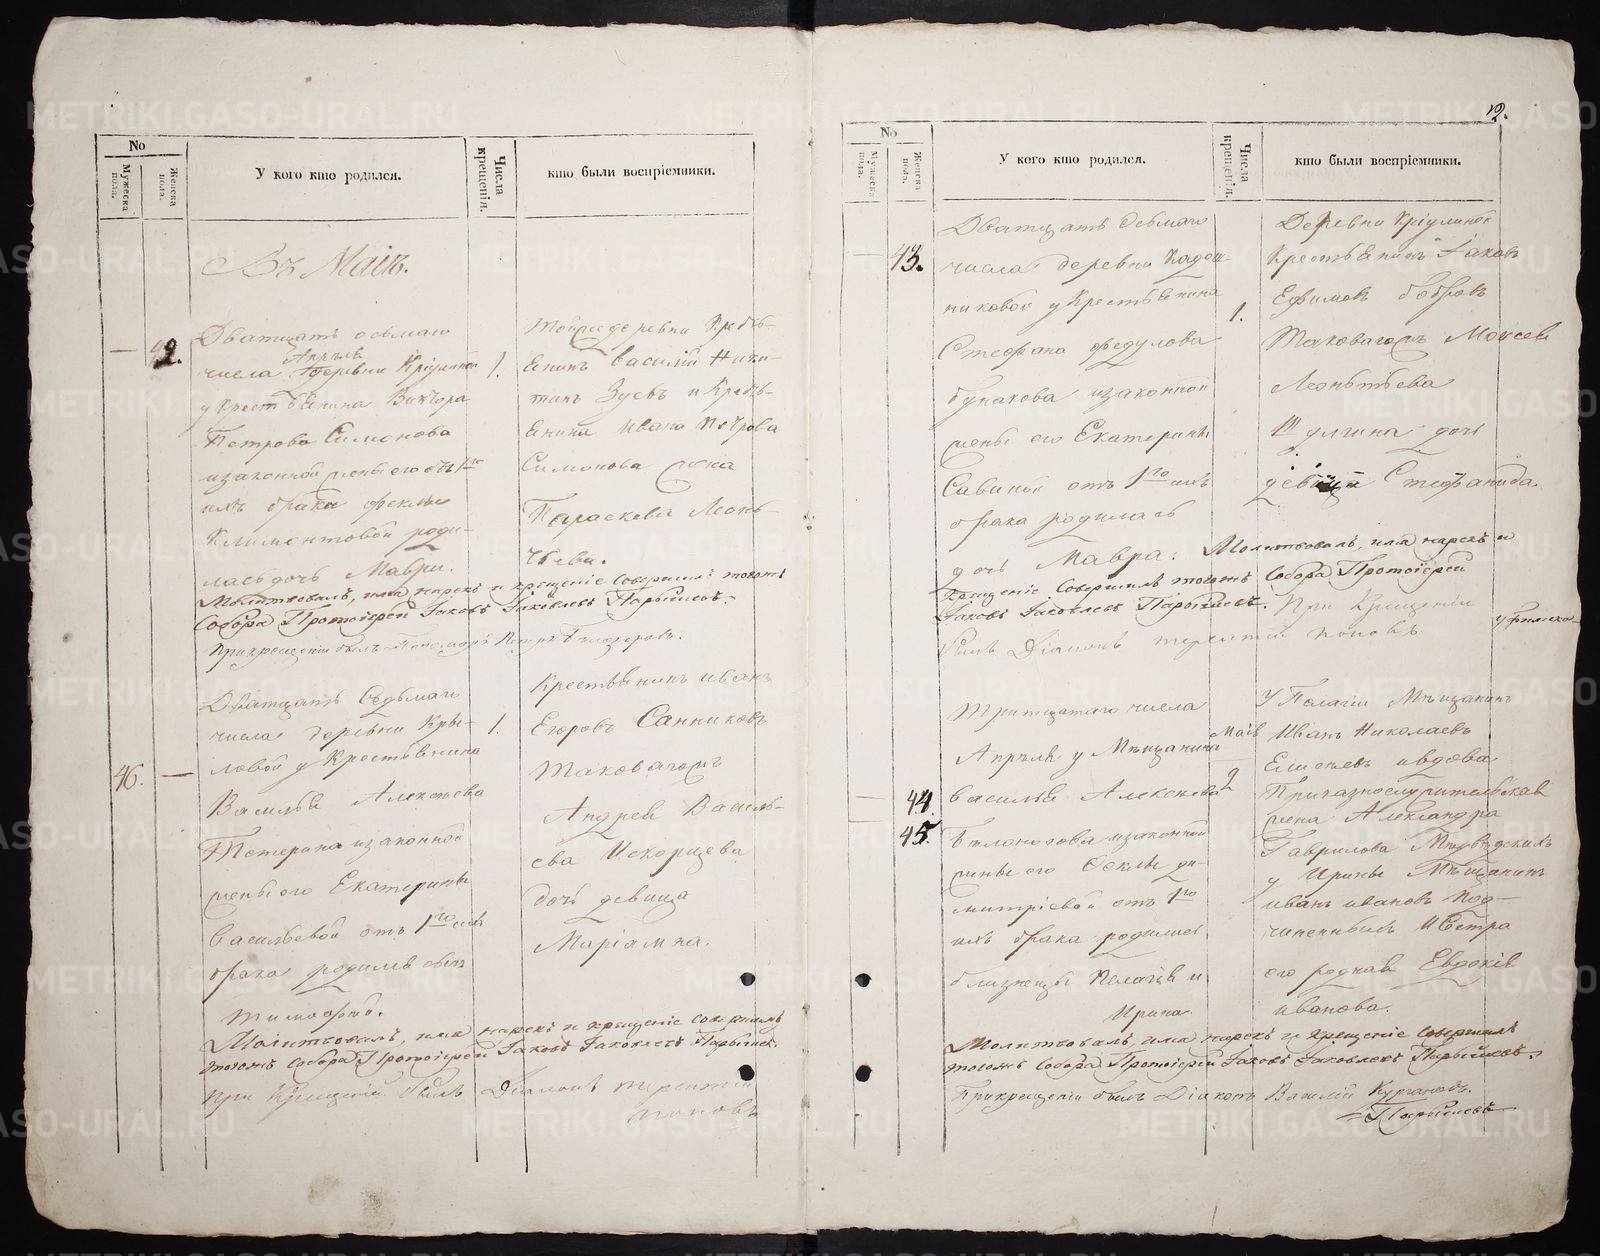 12.
№
Мужеска пола.
Женска пола.
У кого кто родился.
Числа крещенія.
кто были воспріемники.
Въ Маіѣ.
42.
Дватцать осьмаго
Апрѣля
числа деревни Кріулиной
у крестьянина Виктора
Петрова Симонова
изаконной жены его отъ 1го
ихъ брака Феклы
Климонтовой роди-
лась дочь Мавра.
1.
тойже деревни Кресть-
янинъ Василий Ники-
тинъ Зуевъ и Кресть-
янина Ивана Петрова
Симонова жена
Параскева Леонь-
тьева.
Молитвовалъ, имя нарекъ и крещеніе совершилъ тогожъ
Собора Протоіерей Іаковъ Іаковлевъ Парышевъ.
Прикрещеніи былъ Пономарь Петръ
46.
Дватцать Седьмаго
числа деревни Кры-
ловой у Крестьянина
Василья Алексѣева
Тетерина изаконной
жены его Екатерины
Васильевой отъ 1го ихъ
брака родился сынъ
Тимофей.
1.
Крестьянинъ Иванъ
Егоровъ Санниковъ
Таковагожъ
Андрея Василь-
ева Искорцева
дочь девица
Маріамна.
Молитвовалъ, имя нарекъ и крещеніе совершилъ
тогожъ Собора Протоіерей Іаковъ Іаковлевъ Парышевъ.
При Крещеніи былъ Діаконъ Терентій
Поповъ
№
Мужеска пола.
Женска пола.
У кого кто родился.
Числа крещенія.
кто были воспріемники.
43.
Дватцать осьмаго
числа деревни Кадош-
никовой у Крестьянина
Стефана Федулова
Бунакова изаконной
жены его Екатерины
Савиной отъ 1го ихъ
брака родилась
дочь Мавра.
1.
Деревни Кріулиной
Крестьянинъ Іаковъ
Ефимовъ Бобровъ
Таковагожъ Моисея
Леоньтьева
Шулгина дочь
девица Стефанида.
Молитвовалъ, имя нарекъ и
крещеніе совершилъ тогожъ Собора Протоіерей
Іаковъ Іаковлевъ Парышевъ. При Крещеніи
былъ Діаконъ Терентій Поповъ
44.
45.
Тритцатаго числа
Апрѣля у Мѣщанина
Василья Алексѣева
Бѣлоногова изаконной
жены его Феклы Ди-
митріевой отъ 1го
ихъ брака родились
близнецы Пелагія и
Ирина.
Маія
2
У Пелагіи Мѣщанинъ
Иванъ Николаевъ
Елисѣевъ ивдова
жена Александра
Гаврилова
у Ирины Мѣщанинъ
Иванъ Ивановъ Под-
чиненныхъ ИСестра
его родная Евдокія
Иванова.
Молитвовалъ, имя нарекъ и крещеніе совершилъ
тогожъ Собора Протоіерей Іаковъ Іаковлевъ Парышевъ.
Прикрещеніи былъ Діаконъ Василій Кургановъ.
Парышевъ